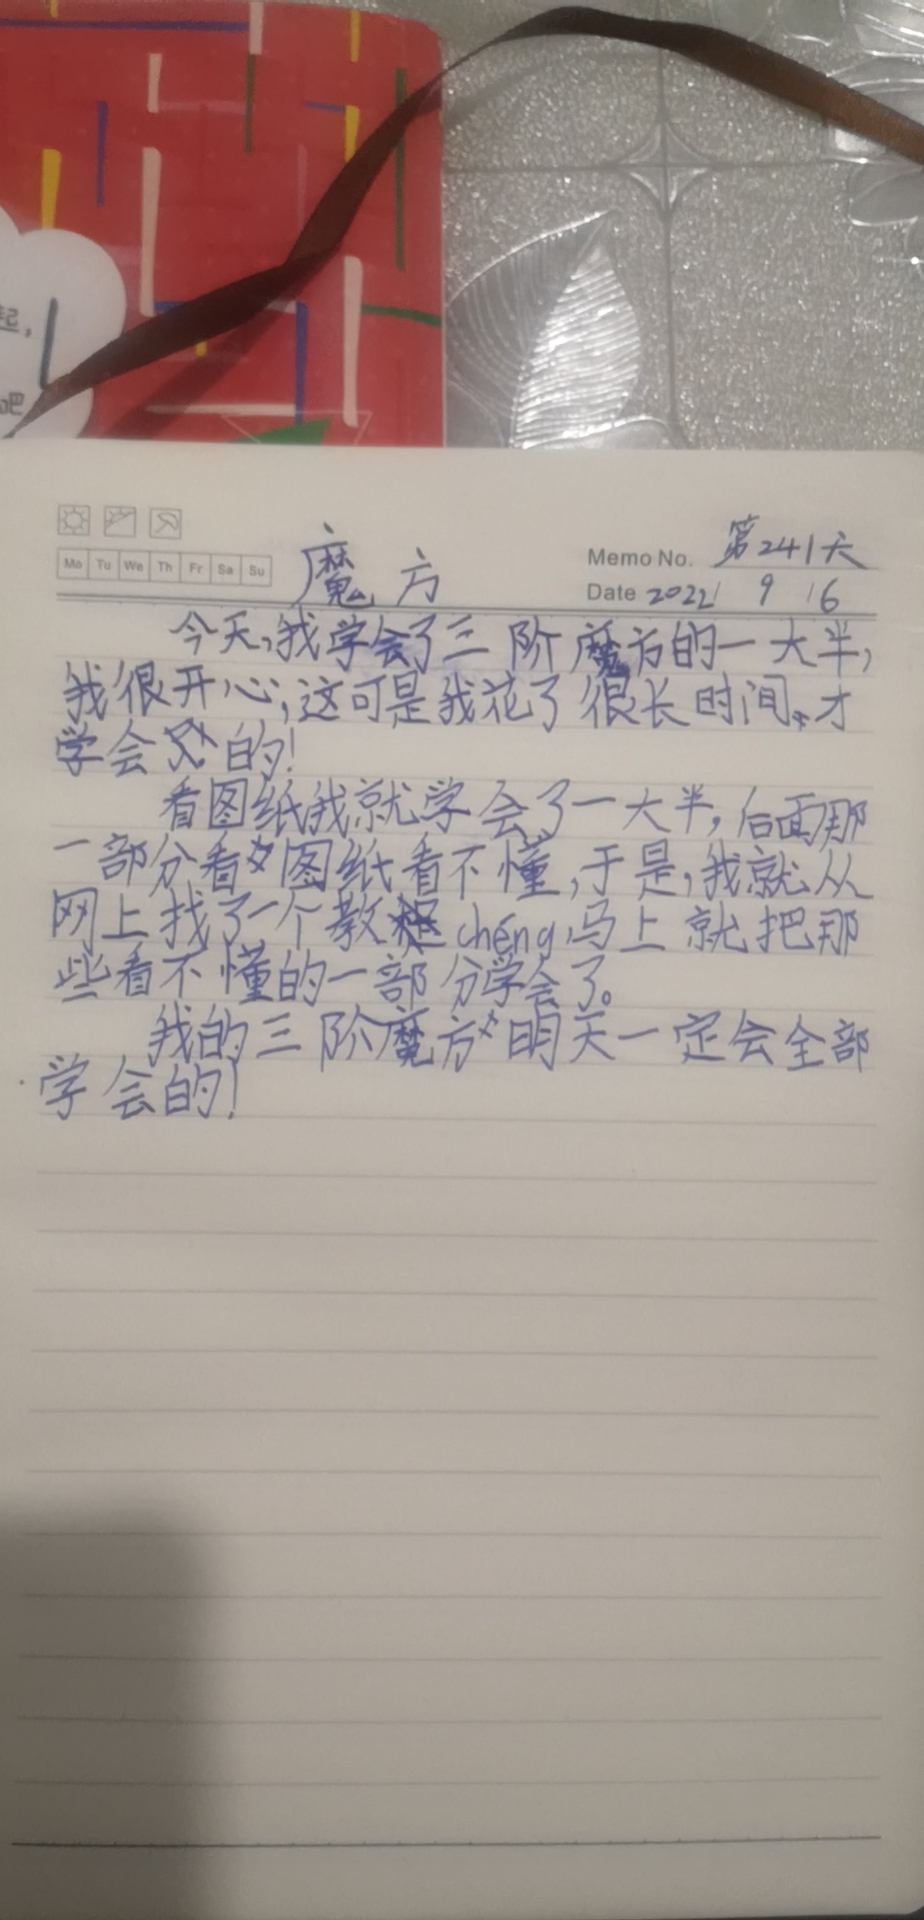 起，
吧
Mo Tu We Th Fr Sa Su
魔方
Memo No. 第241天
Date 2022 9 16
今天,我学会了三阶魔方的一大半,
我很开心,这可是我花了很长时间,才
学会的!
看图纸我就学会了一大半,后面那
一部分看图纸看不懂,于是,我就从
网上找了一个教chéng,马上就把那
些看不懂的一部分学会了。
我的三阶魔方明天一定会全部
学会的!